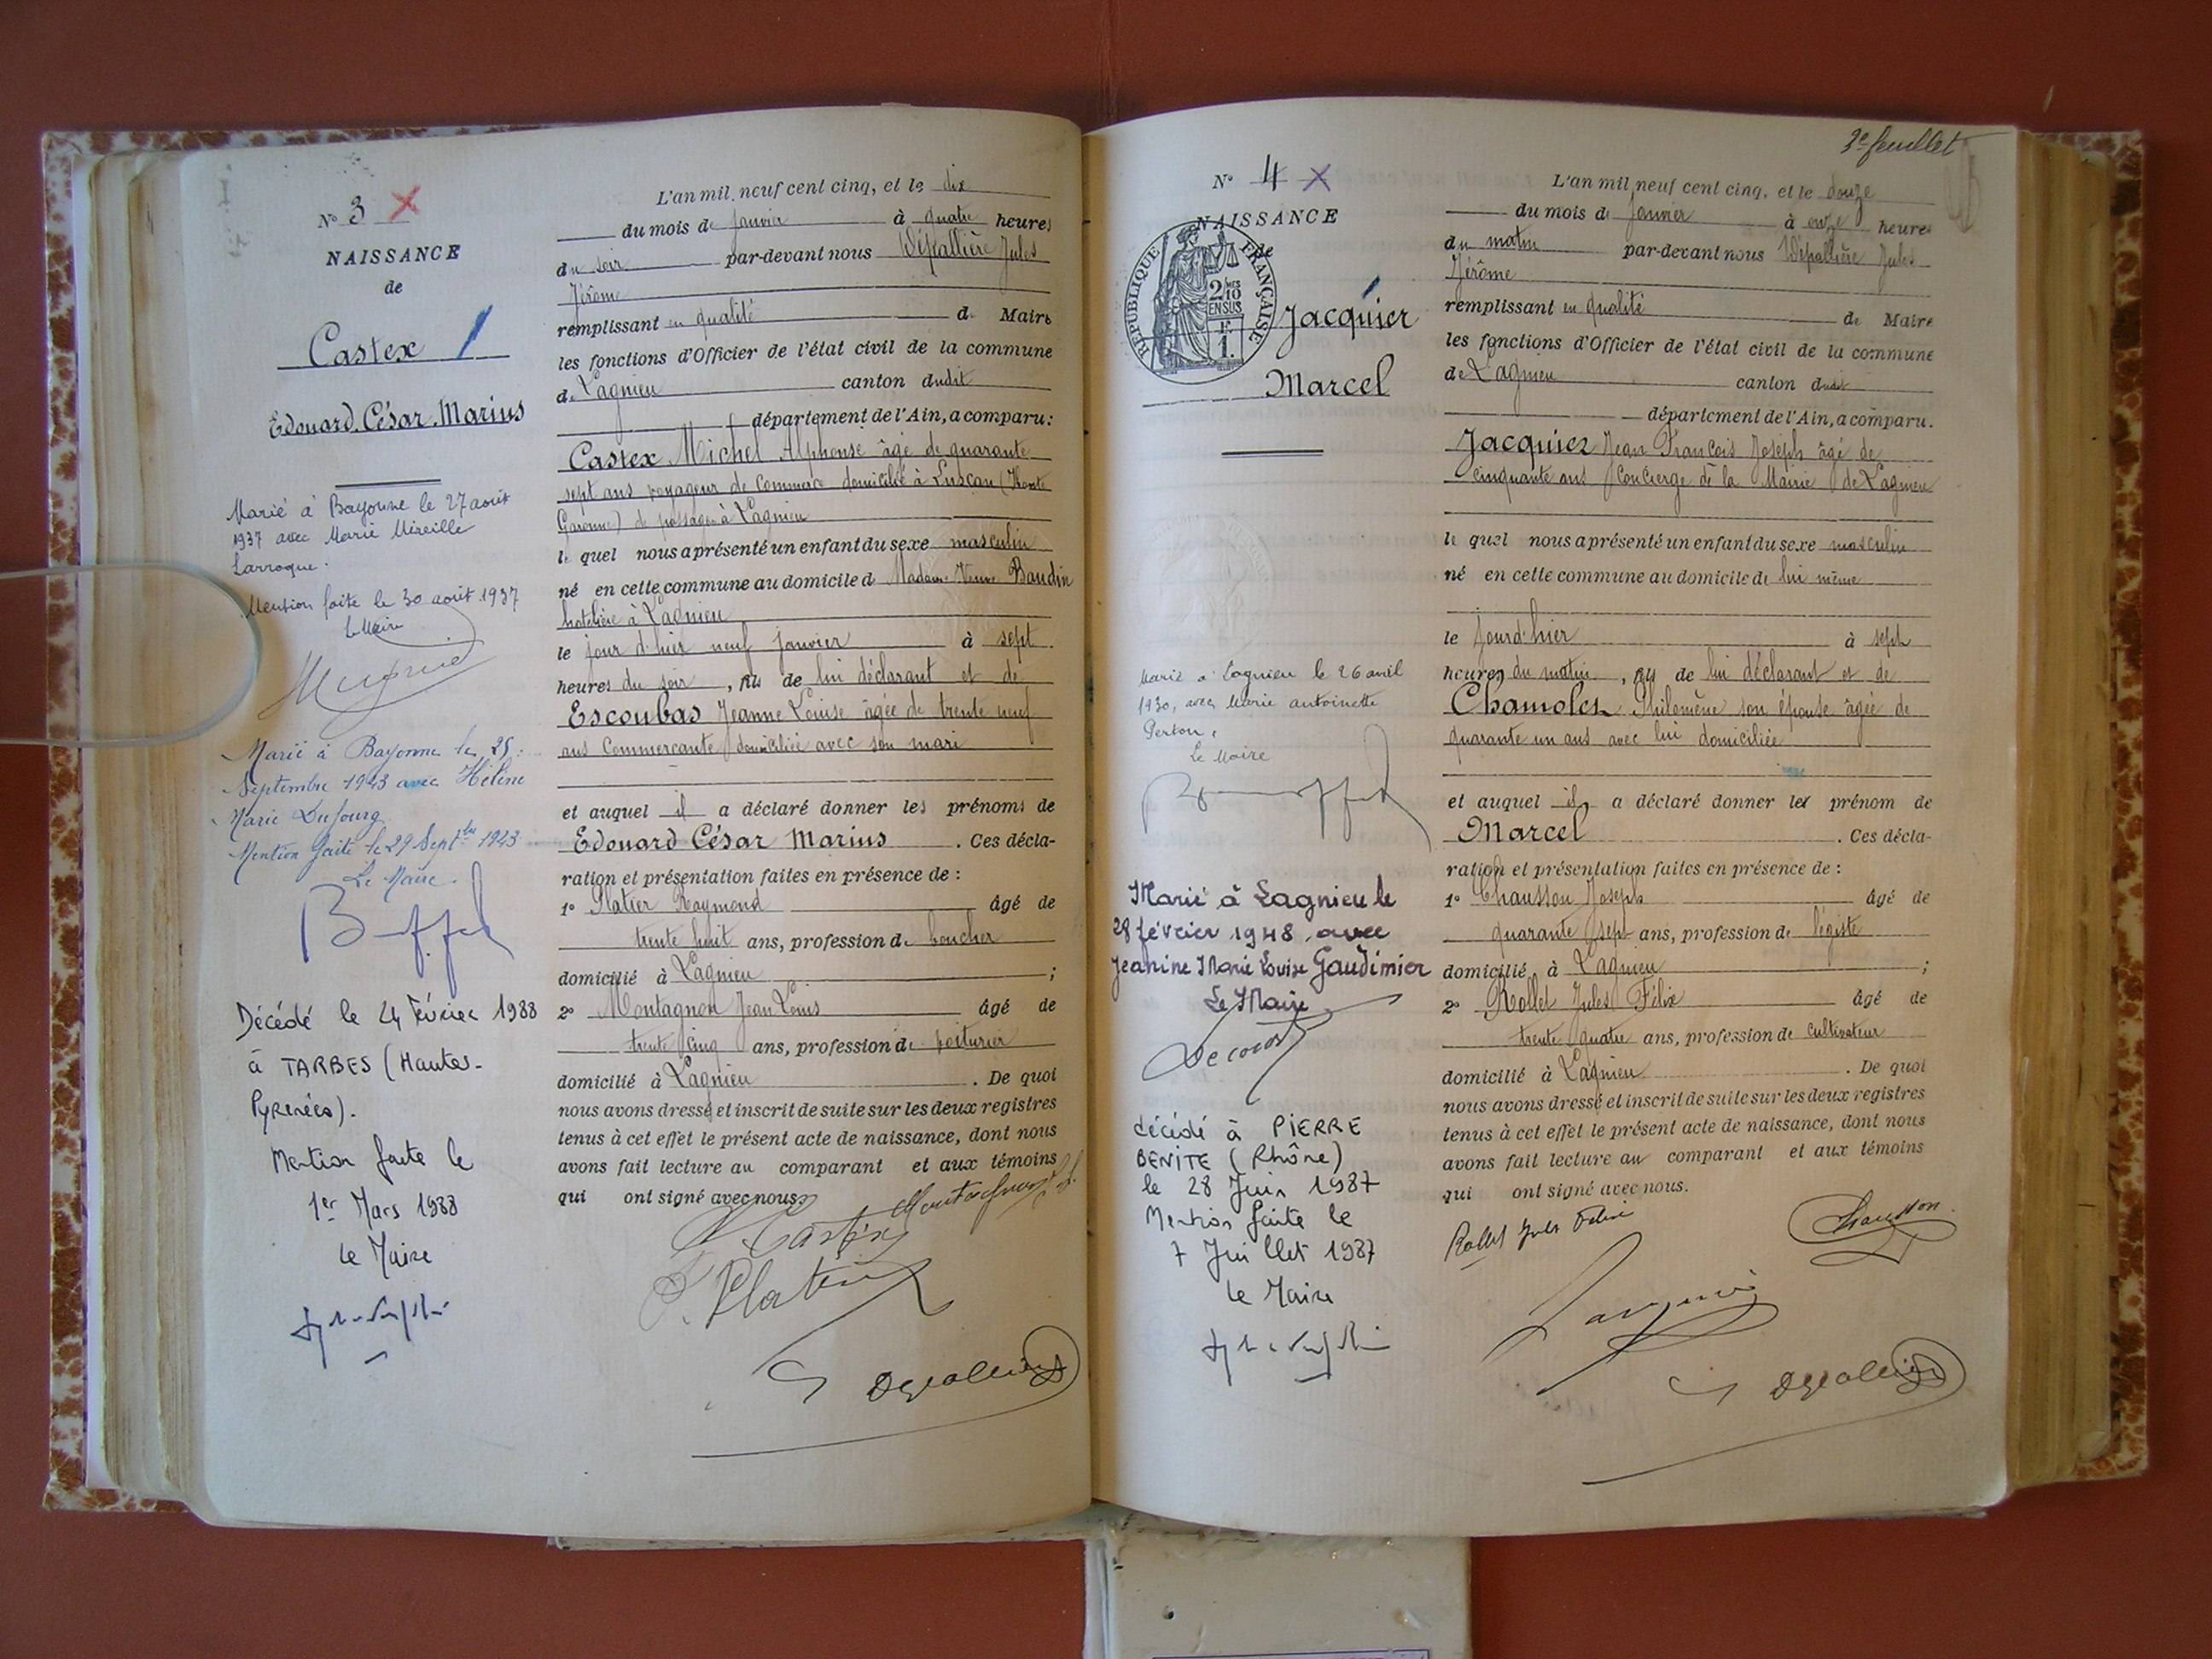 N° 3 X
NAISSANCE
de
Castex
Edouard. César. Marius
Marié à Bayonne le 27 août
1937 avec Marie Mireille
Larroque.
Mention faite le 30 août 1937
Le Maire
Marié à Bayonne le 25
Septembre 1943 avec Hélène
Marie Dufourg
Mention faite le 29 Septbre 1943
Le Maire.
Décédé le 24 Février 1988
à TARBES (Hautes-
Pyrénées).
Mention faite le
1er Mars 1988
Le Maire
L'an mil neuf cent cinq, et le dix
du mois de janvier à quatre heures
du soir par-devant nous Dépallière Jules
Jérôme
remplissant en qualité de Maire
les fonctions d'Officier de l'état civil de la commune
de Lagnieu canton dudit
département de l'Ain, a comparu:
Castex Michel Alphonse âgé de quarante
sept ans voyageur de Commerce domicilié à Luscan (Haute
Garonne) de passage à Lagnieu
le quel nous a présenté un enfant du sexe masculin
né en cette commune au domicile de Madame Veuve Baudin
hotelière à Lagnieu
le jour d'hier neuf janvier à sept
heures du soir, fils de lui déclarant et de
Escoubas Jeanne Louise âgée de trente neuf
ans Commerçante domiciliée avec son mari
et auquel il a déclaré donner les prénoms de
Edouard César Marius. Ces décla-
ration et présentation faites en présence de :
1° Platier Raymond âgé de
trente huit ans, profession de boucher
domicilié à Lagnieu ;
2° Montagnon Jean Louis âgé de
trente cinq ans, profession de voiturier
domicilié à Lagnieu. De quoi
nous avons dressé et inscrit de suite sur les deux registres
tenus à cet effet le présent acte de naissance, dont nous
avons fait lecture au comparant et aux témoins
qui ont signé avec nous
Castex
Platier
3e feuillet
N° 4 X
NAISSANCE
de
RÉPUBLIQUE FRANÇAISE
2/10
EN SUS
1F.
Jacquier
Marcel
Marié à Lagnieu le 26 avril
1930, avec Marie Antoinette
Le Maire
Marié à Lagnieu le
28 février 1948 avec
Jeanine Marie Louise Gaudimier
Le Maire
décédé à PIERRE
BENITE (Rhône)
le 28 Juin 1987
Mention faite le
7 Juillet 1987
Le Maire
L'an mil neuf cent cinq, et le douze
du mois de Janvier à onze heures
du matin par-devant nous Dépallière Jules
Jérôme
remplissant en qualité de Maire
les fonctions d'Officier de l'état civil de la commune
de Lagnieu canton dudit
département de l'Ain, a comparu.
Jacquier Jean François Joseph âgé de
cinquante ans Concierge de la Mairie de Lagnieu
le quel nous a présenté un enfant du sexe masculin
né en cette commune au domicile de lui même
le jourd'hier à sept
heures du matin, fils de lui déclarant et de
Philomène son épouse âgée de
quarante un ans avec lui domiciliée
et auquel il a déclaré donner les prénom de
Marcel. Ces décla-
ration et présentation faites en présence de :
1° Chausson Joseph âgé de
quarante sept ans, profession de légiste
domicilié à Lagnieu ;
2° Rollet Jules Félix âgé de
trente quatre ans, profession de cultivateur
domicilié à Lagnieu. De quoi
nous avons dressé et inscrit de suite sur les deux registres
tenus à cet effet le présent acte de naissance, dont nous
avons fait lecture au comparant et aux témoins
qui ont signé avec nous.
Rollet Jules Félix
Chausson
Jacquier